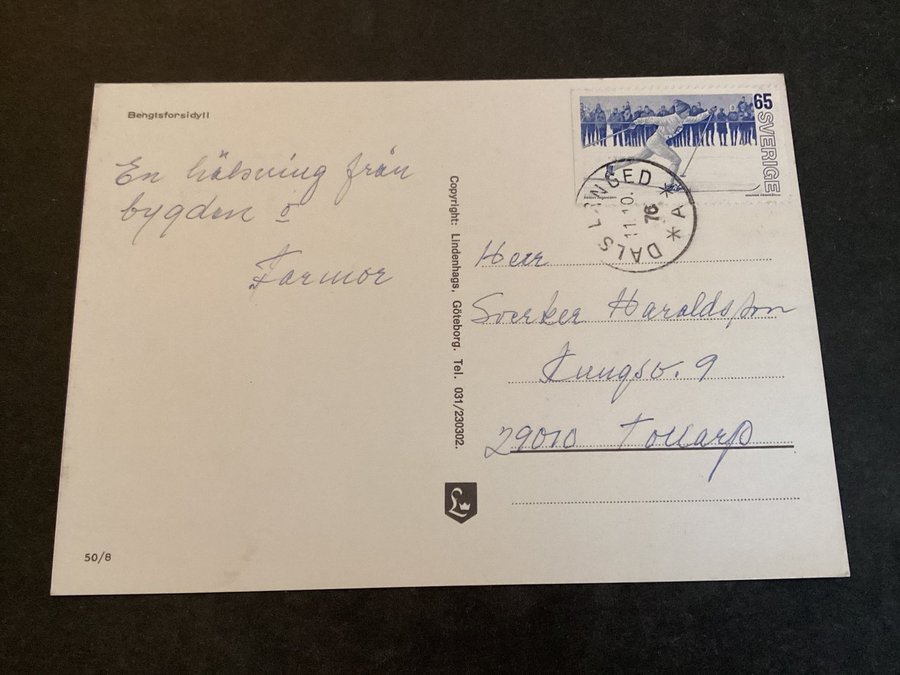 Bengtsforsidyll
En hälsning från
bygden
Farmor
50/8
Copyright: Lindenhags, Göteborg. Tel. 031/230302.
L
65
SVERIGE
DALS LÅNGED
11.10.
76
* A *
Herr
Sverker Haraldsson
Kungsv. 9
29010 Tollarp